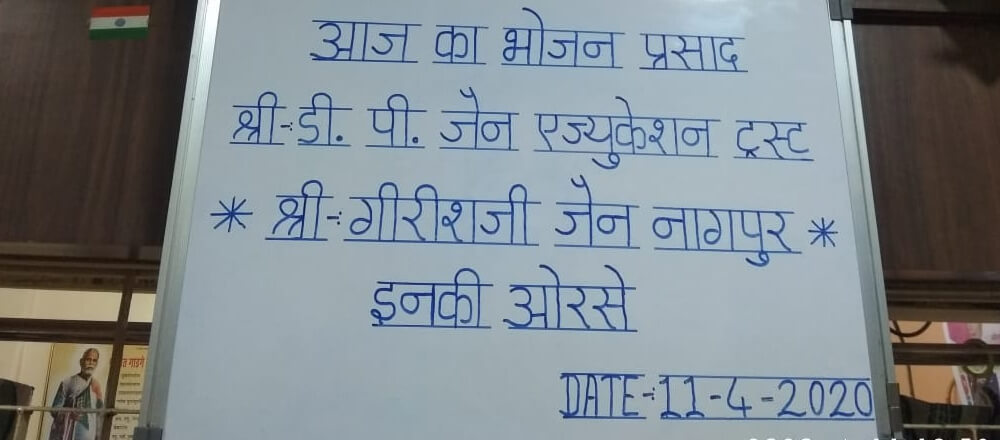 आज का भोजन प्रसाद
श्री-:डी. पी. जैन एज्युकेशन ट्रस्ट
* श्री-:गीरीशजी जैन नागपुर *
इनकी ओरसे
DATE-:11-4-2020
गाडगे